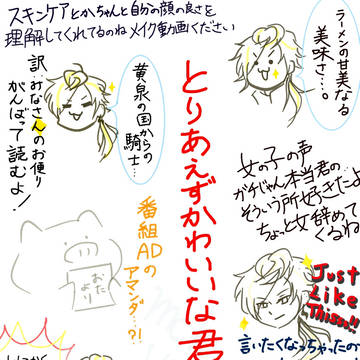 スキンケアとかちゃんと自分の顔の良さを
理解してくれてるのねメイク動画ください
ラーメンの甘美なる
美味さ…。
黄泉の国からの
騎士…
訳:おなさんのお便り
がんばって読むよ!
とりあえずかわいいな君
女の子の声
ガチじゃん本当君の
そういう所好きだよ
ちょっと女辞めて
くるね
番組ADの
アマンダ…?!
おた
より
Just
Like
This!!!
言いたくなっちゃったの